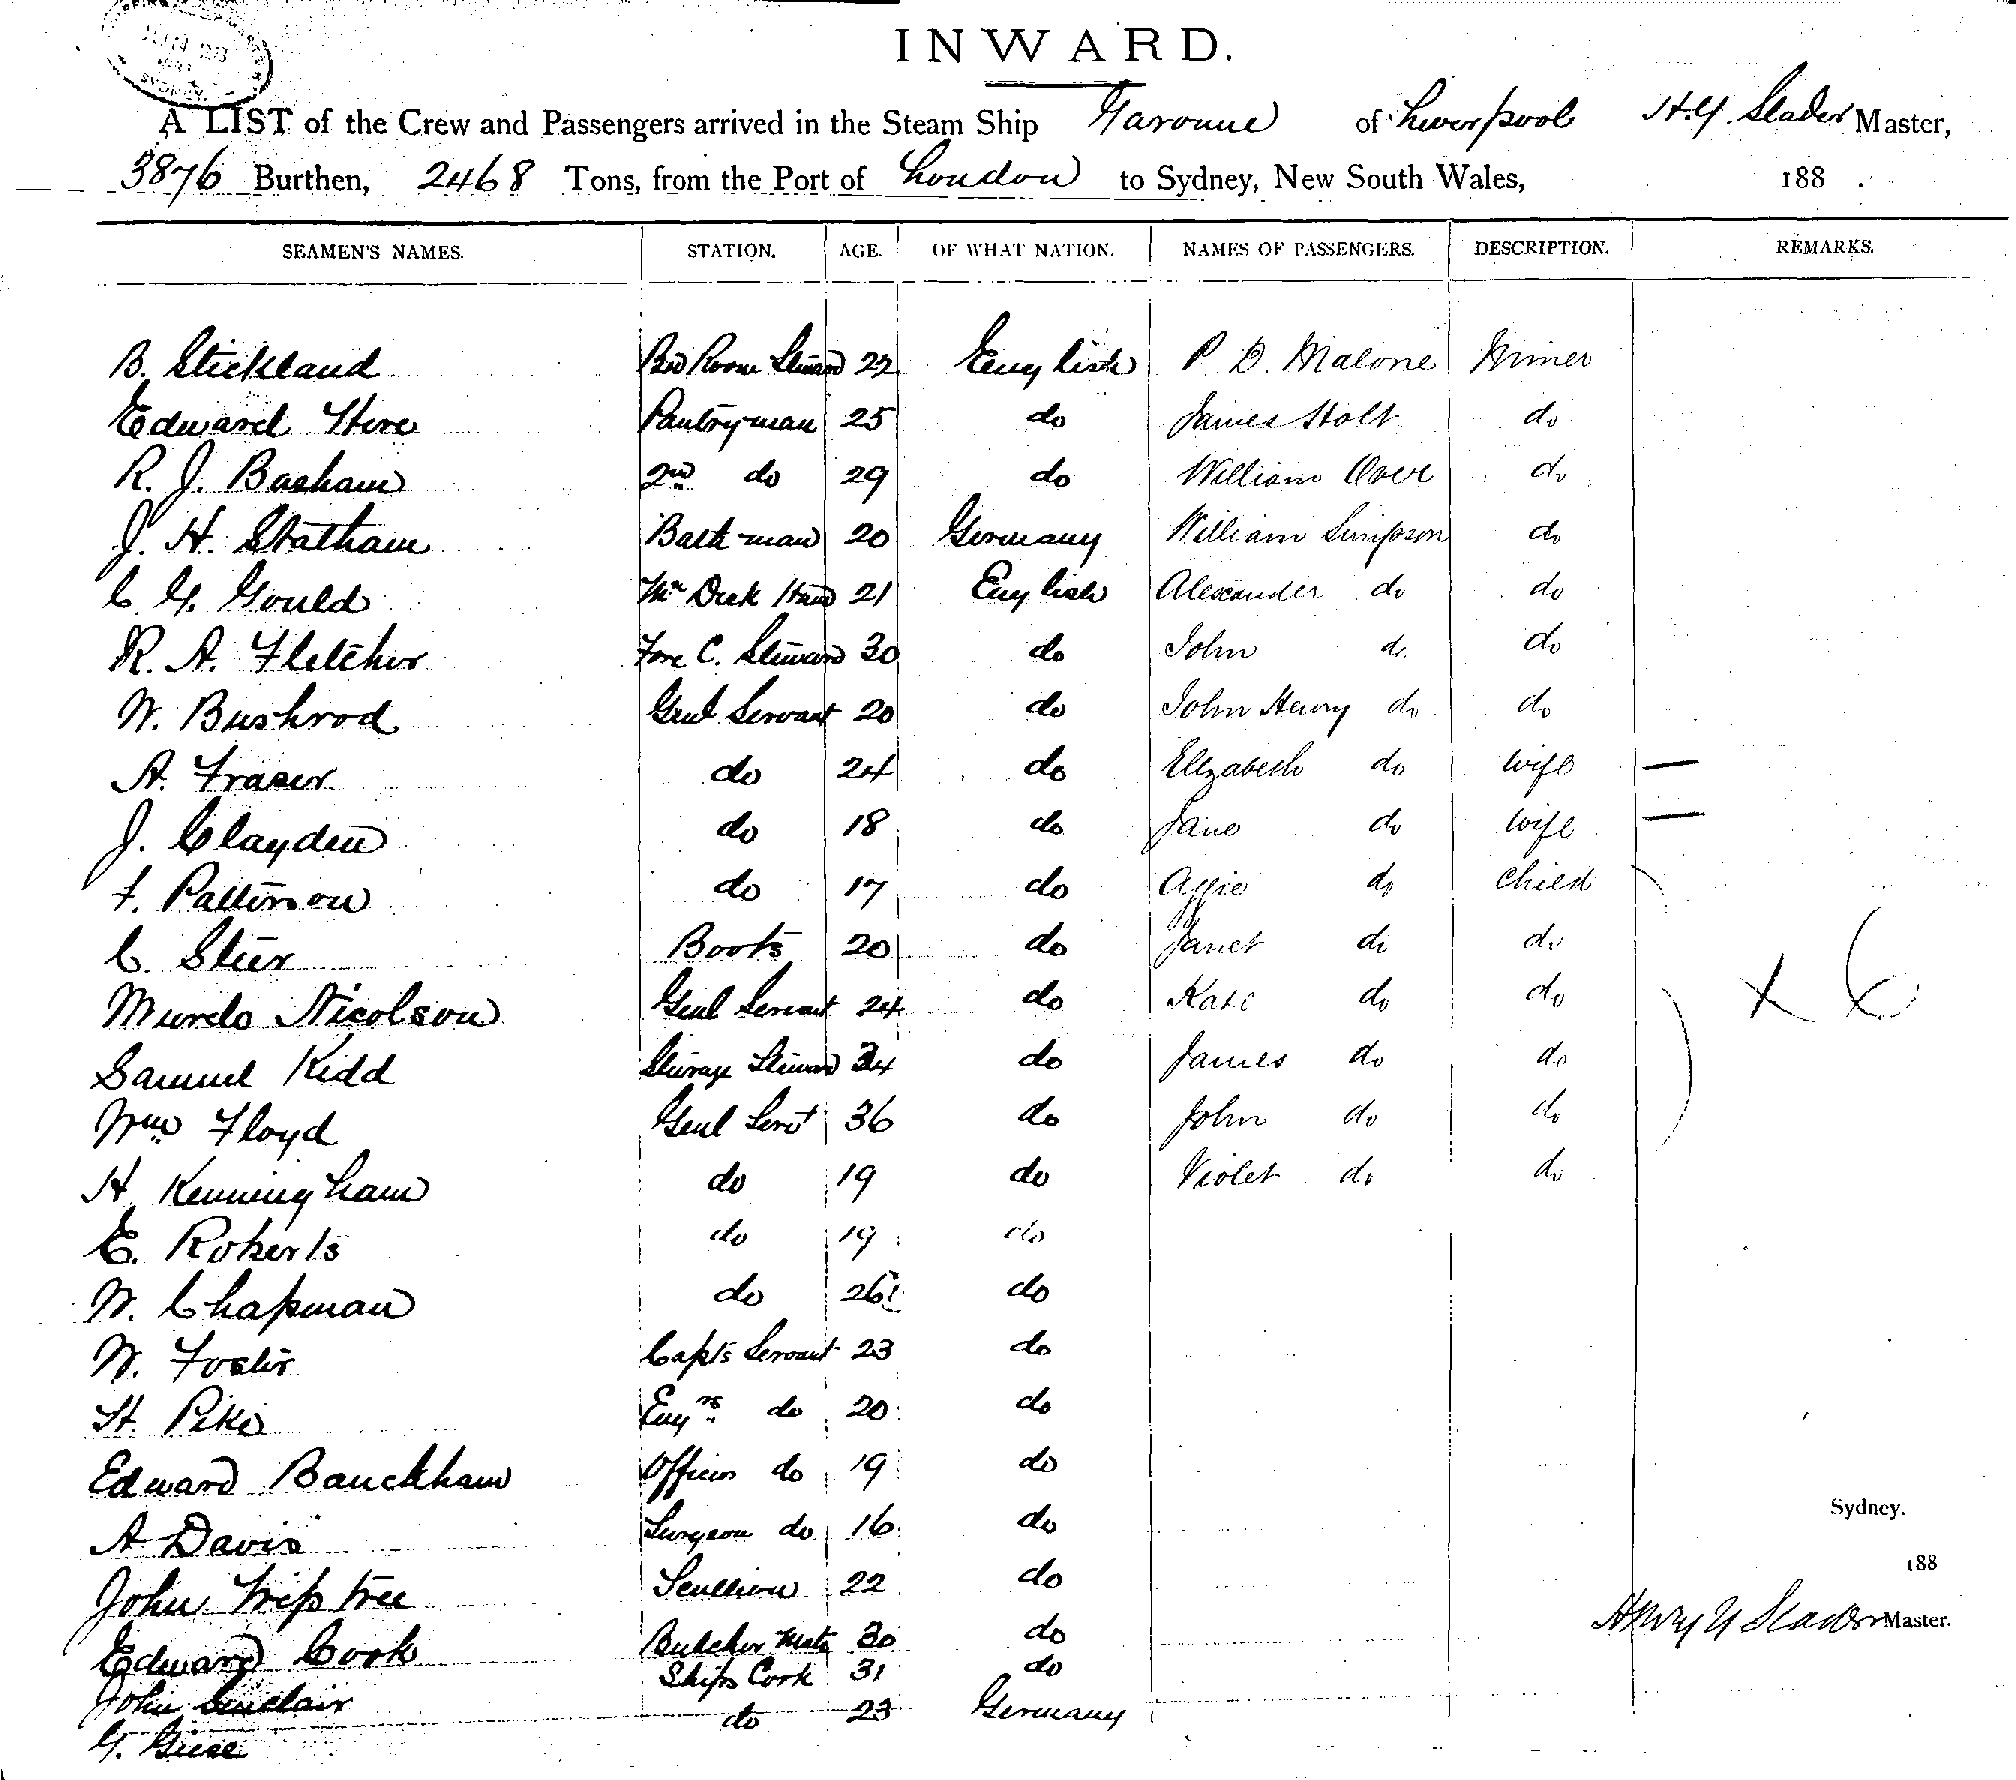 INWARD.
A LIST of the Crew and Passengers arrived in the Steam Ship Garonne of Liverpool H.Y. Slader Master,
3876 Burthen, 2468 Tons, from the Port of London to Sydney, New South Wales, 188 .
SEAMEN'S NAMES. STATION. AGE. OF WHAT NATION. NAMES OF PASSENGERS. DESCRIPTION. REMARKS.
B. Stickland Bed Room Steward 22 English P. D. Malone Miner
Edward Hire Pantryman 25 do James Holt do
R. J. Basham 2nd do 29 do William Over do
J. H. Statham Bath man 20 Germany William Simpson do
C G. Gould Deck Hand 21 English Alexander do do
R. A. Fletcher Fore C. Steward 30 do John do do
W. Bushrod Genl Servant 20 do John Henry do do
A. Fraser do 24 do Elizabeth do wife —
J. Clayden do 18 do Jane do wife —
F. Patterson do 17 do Aggie do Child
C. Steer Boots 20 do Janet do do
Murdo Nicolson Genl Servant 24 do Kate do do × 6
Samuel Kidd Steerage Steward 34 do James do do
Wm Floyd Genl Servt 36 do John do do
H. Kenningham do 19 do Violet do do
E. Roberts do 19 do
W. Chapman do 26 do
W. Foster Capts Servant 23 do
H. Pike Engrs do 20 do
Edward Bauckham Officers do 19 do
A Davis Surgeon do 16 do
Sydney.
188
John Triptree Scullion 22 do
Henry Y Slader Master.
Edward Cook Butcher Mate 30 do
John Sinclair Ships Cook 31 do
G. Giese do 23 Germany